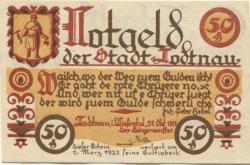 Notgeld
der Stadt Todtnau
Waisch, wo der Weg zum Gulden isch?
Er goht de rote Chrüzere no,
Und wer nit uf e Chrüzer luegt
der wird zum Gulde schwerli cho
Joh. Peter Hebel
Todtnau i. Wiesental, 31. Okt. 1921
Der Bürgermeister
50 50
Dieser Schein verliert am
1. März 1922 seine Gültigkeit